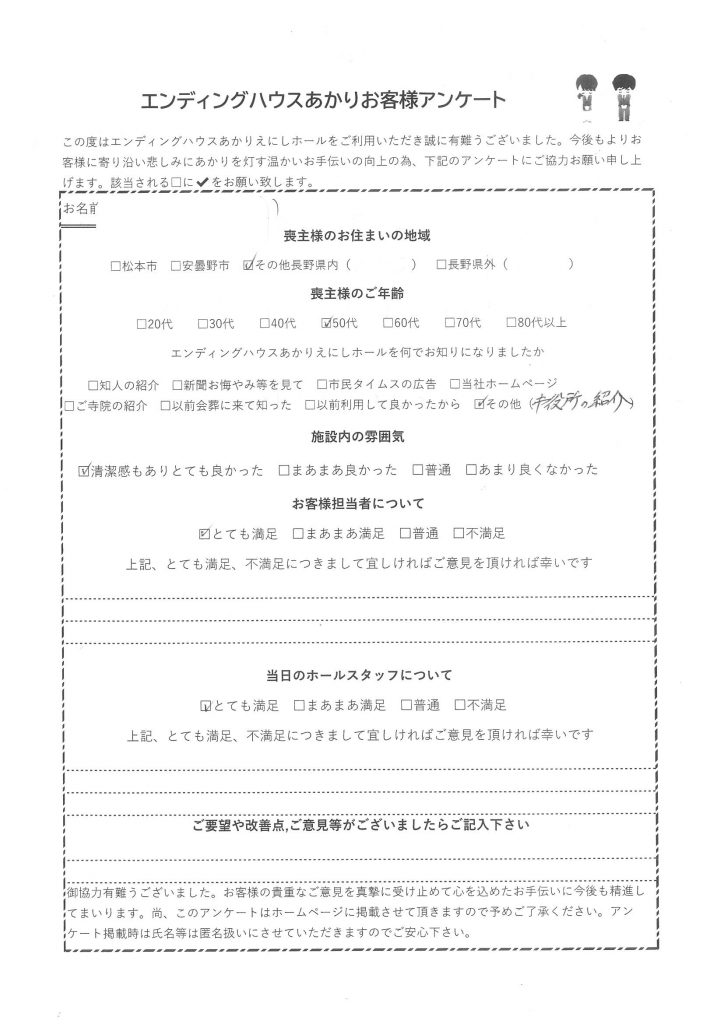 エンディングハウスあかりお客様アンケート
この度はエンディングハウスあかりえにしホールをご利用いただき誠に有難うございました。今後もよりお
客様に寄り沿い悲しみにあかりを灯す温かいお手伝いの向上の為、下記のアンケートにご協力お願い申し上
げます。該当される□に✔をお願い致します。
お名前 )
喪主様のお住まいの地域
□松本市 □安曇野市 ☑その他長野県内( ) □長野県外( )
喪主様のご年齢
□20代 □30代 □40代 ☑50代 □60代 □70代 □80代以上
エンディングハウスあかりえにしホールを何でお知りになりましたか
□知人の紹介 □新聞お悔やみ等を見て □市民タイムスの広告 □当社ホームページ
□ご寺院の紹介 □以前会葬に来て知った □以前利用して良かったから ☑その他(市役所の紹介)
施設内の雰囲気
☑清潔感もありとても良かった □まあまあ良かった □普通 □あまり良くなかった
お客様担当者について
☑とても満足 □まあまあ満足 □普通 □不満足
上記、とても満足、不満足につきまして宜しければご意見を頂ければ幸いです
当日のホールスタッフについて
☑とても満足 □まあまあ満足 □普通 □不満足
上記、とても満足、不満足につきまして宜しければご意見を頂ければ幸いです
ご要望や改善点,ご意見等がございましたらご記入下さい
御協力有難うございました。お客様の貴重なご意見を真摯に受け止めて心を込めたお手伝いに今後も精進し
てまいります。尚、このアンケートはホームページに掲載させて頂きますので予めご了承ください。アン
ケート掲載時は氏名等は匿名扱いにさせていただきますのでご安心下さい。